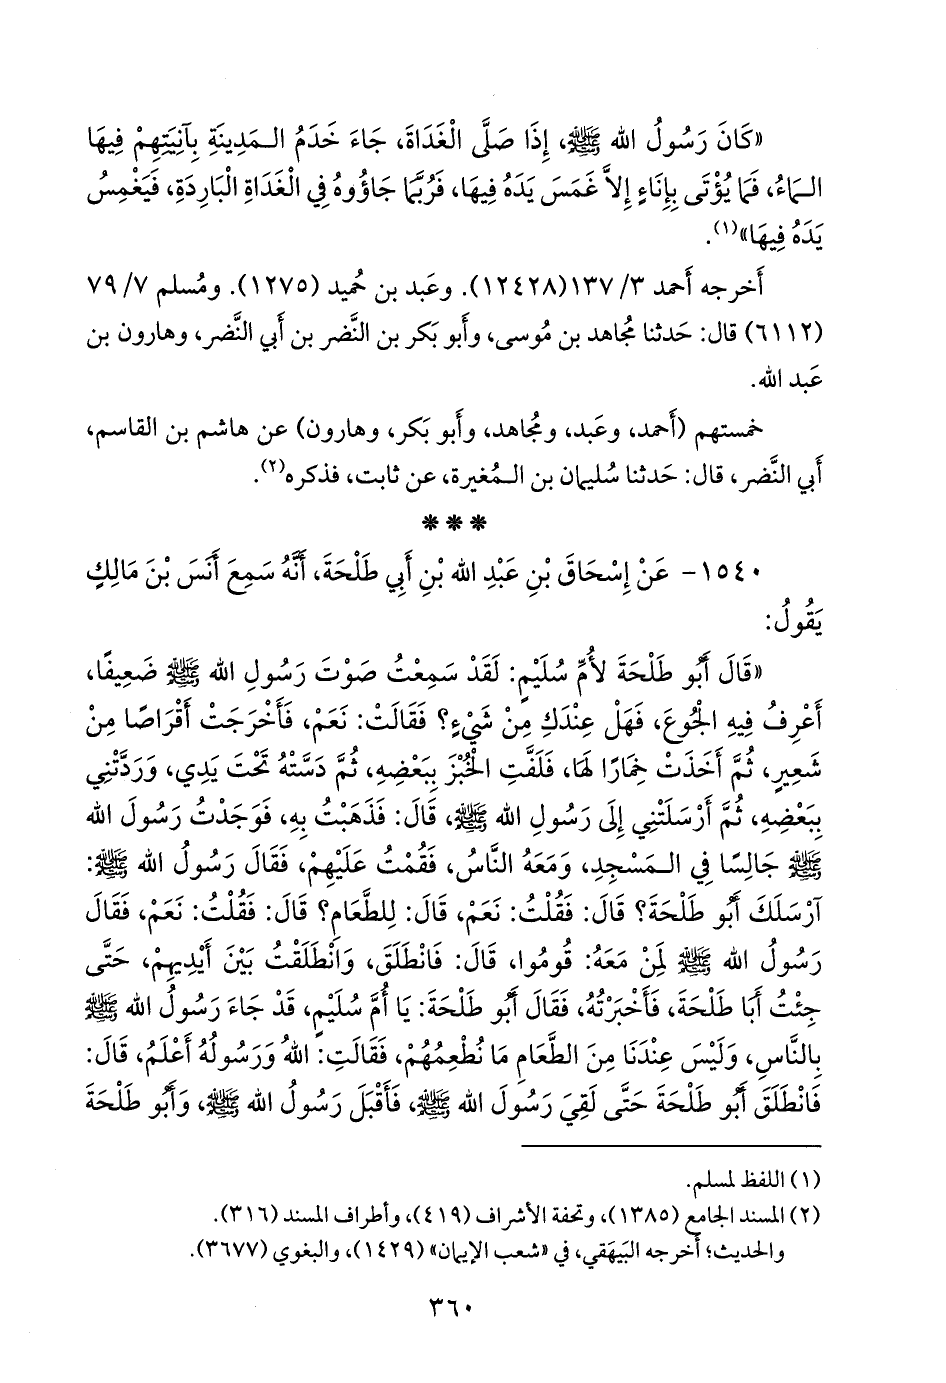 «كَانَ رَسُولُ الله ﷺ، إِذَا صَلَّى الْغَدَاةَ، جَاءَ خَدَمُ الـمَدِينَةِ بِآنِيَتِهِمْ فِيهَا
الـمَاءُ، فَمَا يُؤْتَى بِإِنَاءٍ إِلاَّ غَمَسَ يَدَهُ فِيهَا، فَرُبَّمَا جَاؤُوهُ فِي الْغَدَاةِ الْبَارِدَةِ، فَيَغْمِسُ
يَدَهُ فِيهَا»(١).
أَخرجه أَحمد ٣/ ١٣٧(١٢٤٢٨). وعَبد بن حُميد (١٢٧٥). ومُسلم ٧/ ٧٩
(٦١١٢) قال: حَدثنا مُجاهد بن مُوسى، وأَبو بَكر بن النَّضر بن أَبي النَّضر، وهارون بن
عَبد الله.
خمستهم (أَحمد، وعَبد، ومُجاهد، وأَبو بَكر، وهارون) عن هاشم بن القاسم،
أَبي النَّضر، قال: حَدثنا سُليمان بن الـمُغيرة، عن ثابت، فذكره(٢).
* * *
١٥٤٠- عَنْ إِسْحَاقَ بْنِ عَبْدِ الله بْنِ أَبِي طَلْحَةَ، أَنَّهُ سَمِعَ أَنَسَ بْنَ مَالِكٍ
يَقُولُ:
«قَالَ أَبُو طَلْحَةَ لأُمِّ سُلَيْمٍ: لَقَدْ سَمِعْتُ صَوْتَ رَسُولِ الله ﷺ ضَعِيفًا،
أَعْرِفُ فِيهِ الْجُوعَ، فَهَلْ عِنْدَكِ مِنْ شَيْءٍ؟ فَقَالَتْ: نَعَمْ، فَأَخْرَجَتْ أَقْرَاصًا مِنْ
شَعِيرٍ، ثُمَّ أَخَذَتْ خِمَارًا لَهَا، فَلَفَّتِ الْخُبْزَ بِبَعْضِهِ، ثُمَّ دَسَّتْهُ تَحْتَ يَدِي، وَرَدَّتْنِي
بِبَعْضِهِ، ثُمَّ أَرْسَلَتْنِي إِلَى رَسُولِ الله ﷺ، قَالَ: فَذَهَبْتُ بِهِ، فَوَجَدْتُ رَسُولَ الله
ﷺ جَالِسًا فِي الـمَسْجِدِ، وَمَعَهُ النَّاسُ، فَقُمْتُ عَلَيْهِمْ، فَقَالَ رَسُولُ الله ﷺ:
آرْسَلَكَ أَبُو طَلْحَةَ؟ قَالَ: فَقُلْتُ: نَعَمْ، قَالَ: لِلطَّعَامِ؟ قَالَ: فَقُلْتُ: نَعَمْ، فَقَالَ
رَسُولُ الله ﷺ لِمَنْ مَعَهُ: قُومُوا، قَالَ: فَانْطَلَقَ، وَانْطَلَقْتُ بَيْنَ أَيْدِيهِمْ، حَتَّى
جِئْتُ أَبَا طَلْحَةَ، فَأَخْبَرْتُهُ، فَقَالَ أَبُو طَلْحَةَ: يَا أُمَّ سُلَيْمٍ، قَدْ جَاءَ رَسُولُ الله ﷺ
بِالنَّاسِ، وَلَيْسَ عِنْدَنَا مِنَ الطَّعَامِ مَا نُطْعِمُهُمْ، فَقَالَتِ: اللهُ وَرَسُولُهُ أَعْلَمُ، قَالَ:
فَانْطَلَقَ أَبُو طَلْحَةَ حَتَّى لَقِيَ رَسُولَ الله ﷺ، فَأَقْبَلَ رَسُولُ الله ﷺ، وَأَبُو طَلْحَةَ
(١) اللفظ لمسلم.
(٢) المسند الجامع (١٣٨٥)، وتحفة الأشراف (٤١٩)، وأطراف المسند (٣١٦).
والحديث؛ أخرجه البَيهَقي، في «شعب الإيمان» (١٤٢٩)، والبغوي (٣٦٧٧).
٣٦٠